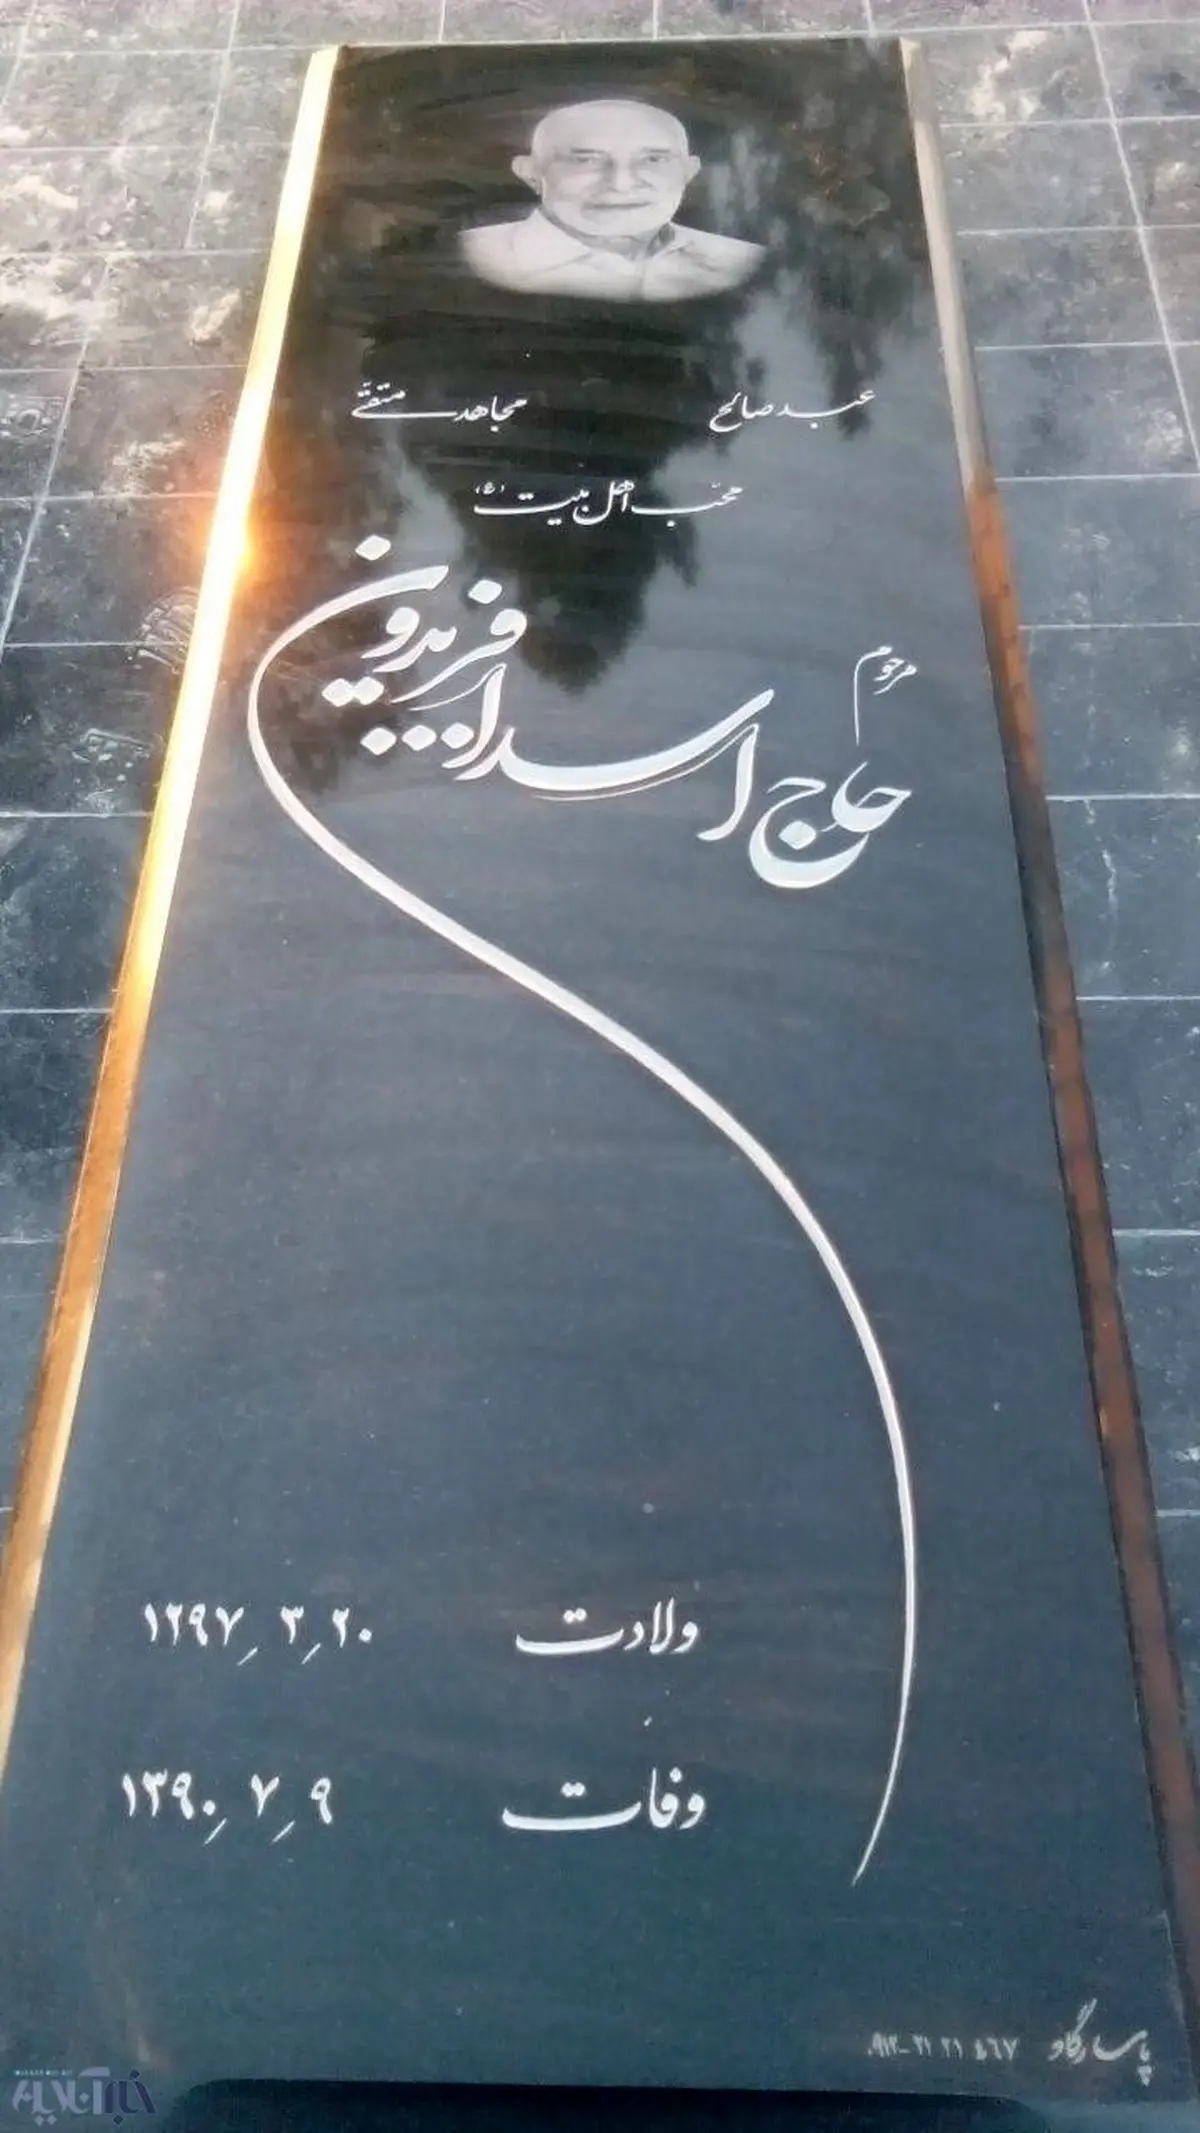 عبد صالح مجاهد متقی
محب اهل بیت (ع)
مرحوم
حاج اسداله فریدون
ولادت ۱۲۹۷٫۳٫۲۰
وفات ۱۳۹۰٫۷٫۹
پاسارگاد ۰۹۱۲-۲۱ ۲۱ ۴۶۷
خبرآنلاین